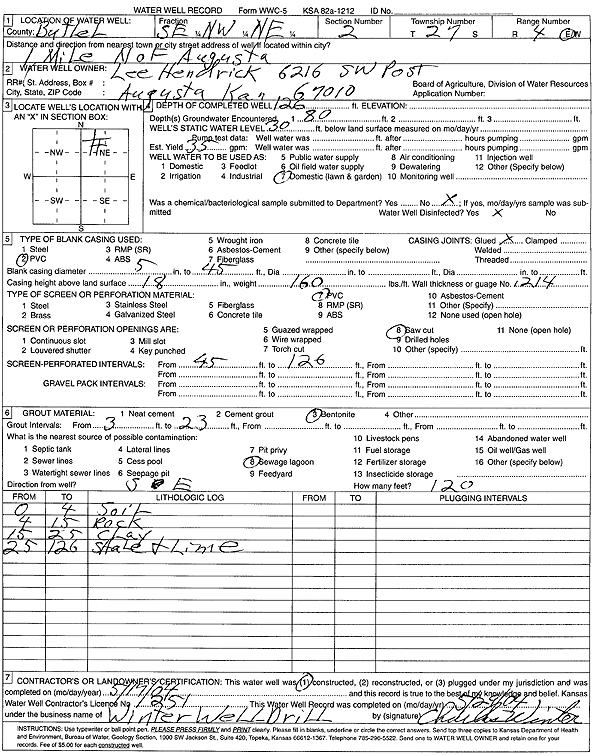 WATER WELL RECORD Form WWC-5 KSA 82a-1212 ID No.
1 LOCATION OF WATER WELL: Fraction Section Number Township Number Range Number
County: Butler SE ¼ NW ¼ NE ¼ 2 T 27 S R 4 E/W
Distance and direction from nearest town or city street address of well if located within city?
1 Mile N of Augusta
2 WATER WELL OWNER: Lee Hendrick 6216 SW Post
RR#, St. Address, Box # : Board of Agriculture, Division of Water Resources
City, State, ZIP Code : Augusta Kan 67010 Application Number:
3 LOCATE WELL'S LOCATION WITH AN "X" IN SECTION BOX:
N
NW NE
W E
SW SE
S
4 DEPTH OF COMPLETED WELL 126 ft. ELEVATION:
Depth(s) Groundwater Encountered 1 80 ft. 2 ft. 3 ft.
WELL'S STATIC WATER LEVEL 30 ft. below land surface measured on mo/day/yr
Pump test data: Well water was ft. after hours pumping gpm
Est. Yield 35 gpm: Well water was ft. after hours pumping gpm
WELL WATER TO BE USED AS: 5 Public water supply 8 Air conditioning 11 Injection well
1 Domestic 3 Feedlot 6 Oil field water supply 9 Dewatering 12 Other (Specify below)
2 Irrigation 4 Industrial 7 Domestic (lawn & garden) 10 Monitoring well
Was a chemical/bacteriological sample submitted to Department? Yes No X ; If yes, mo/day/yrs sample was submitted
Water Well Disinfected? Yes X No
5 TYPE OF BLANK CASING USED: 5 Wrought iron 8 Concrete tile CASING JOINTS: Glued X Clamped
1 Steel 3 RMP (SR) 6 Asbestos-Cement 9 Other (specify below) Welded
2 PVC 4 ABS 7 Fiberglass Threaded
Blank casing diameter 5 in. to 45 ft., Dia in. to ft., Dia in. to ft.
Casing height above land surface 18 in., weight 160 lbs./ft. Wall thickness or guage No. .214
TYPE OF SCREEN OR PERFORATION MATERIAL: 7 PVC 10 Asbestos-Cement
1 Steel 3 Stainless Steel 5 Fiberglass 8 RMP (SR) 11 Other (Specify)
2 Brass 4 Galvanized Steel 6 Concrete tile 9 ABS 12 None used (open hole)
SCREEN OR PERFORATION OPENINGS ARE: 5 Guazed wrapped 8 Saw cut 11 None (open hole)
1 Continuous slot 3 Mill slot 6 Wire wrapped 9 Drilled holes
2 Louvered shutter 4 Key punched 7 Torch cut 10 Other (specify) ft.
SCREEN-PERFORATED INTERVALS: From 45 ft. to 126 ft., From ft. to ft.
From ft. to ft., From ft. to ft.
GRAVEL PACK INTERVALS: From ft. to ft., From ft. to ft.
From ft. to ft., From ft. to ft.
6 GROUT MATERIAL: 1 Neat cement 2 Cement grout 3 Bentonite 4 Other
Grout Intervals: From 3 ft. to 23 ft., From ft. to ft., From ft. to ft.
What is the nearest source of possible contamination: 10 Livestock pens 14 Abandoned water well
1 Septic tank 4 Lateral lines 7 Pit privy 11 Fuel storage 15 Oil well/Gas well
2 Sewer lines 5 Cess pool 8 Sewage lagoon 12 Fertilizer storage 16 Other (specify below)
3 Watertight sewer lines 6 Seepage pit 9 Feedyard 13 Insecticide storage
Direction from well? S E How many feet? 120
FROM TO LITHOLOGIC LOG FROM TO PLUGGING INTERVALS
0 4 Soil
4 15 Rock
15 25 Clay
25 126 Shale & Lime
7 CONTRACTOR'S OR LANDOWNER'S CERTIFICATION: This water well was (1) constructed, (2) reconstructed, or (3) plugged under my jurisdiction and was
completed on (mo/day/year) and this record is true to the best of my knowledge and belief. Kansas
Water Well Contractor's Licence No. This Water Well Record was completed on (mo/day/yr)
under the business name of Winter Well Drill by (signature)
INSTRUCTIONS: Use typewriter or ball point pen. PLEASE PRESS FIRMLY and PRINT clearly. Please fill in blanks, underline or circle the correct answers. Send top three copies to Kansas Department of Health
and Environment, Bureau of Water, Geology Section, 1000 SW Jackson St., Suite 420, Topeka, Kansas 66612-1367. Telephone 785-296-5522. Send one to WATER WELL OWNER and retain one for your
records. Fee of $5.00 for each constructed well.